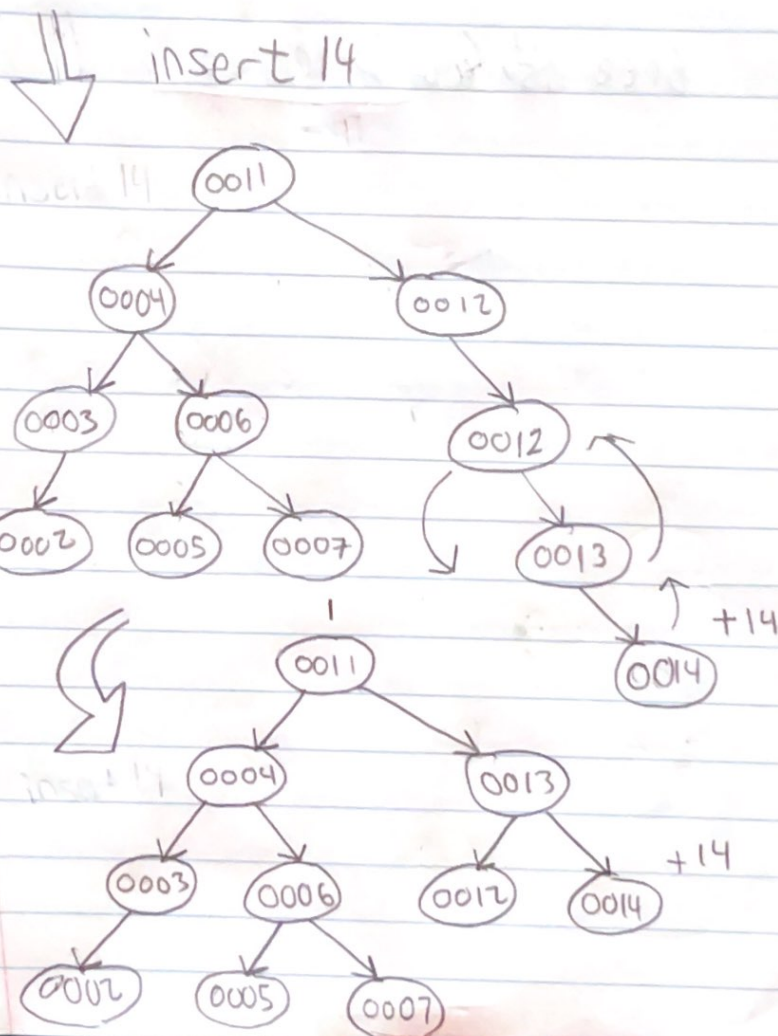 insert 14
0011
0004 0012
0003 0006 0012
0002 0005 0007 0013
+14
0014
0011
0004 0013
+14
0003 0006 0012 0014
0002 0005 0007